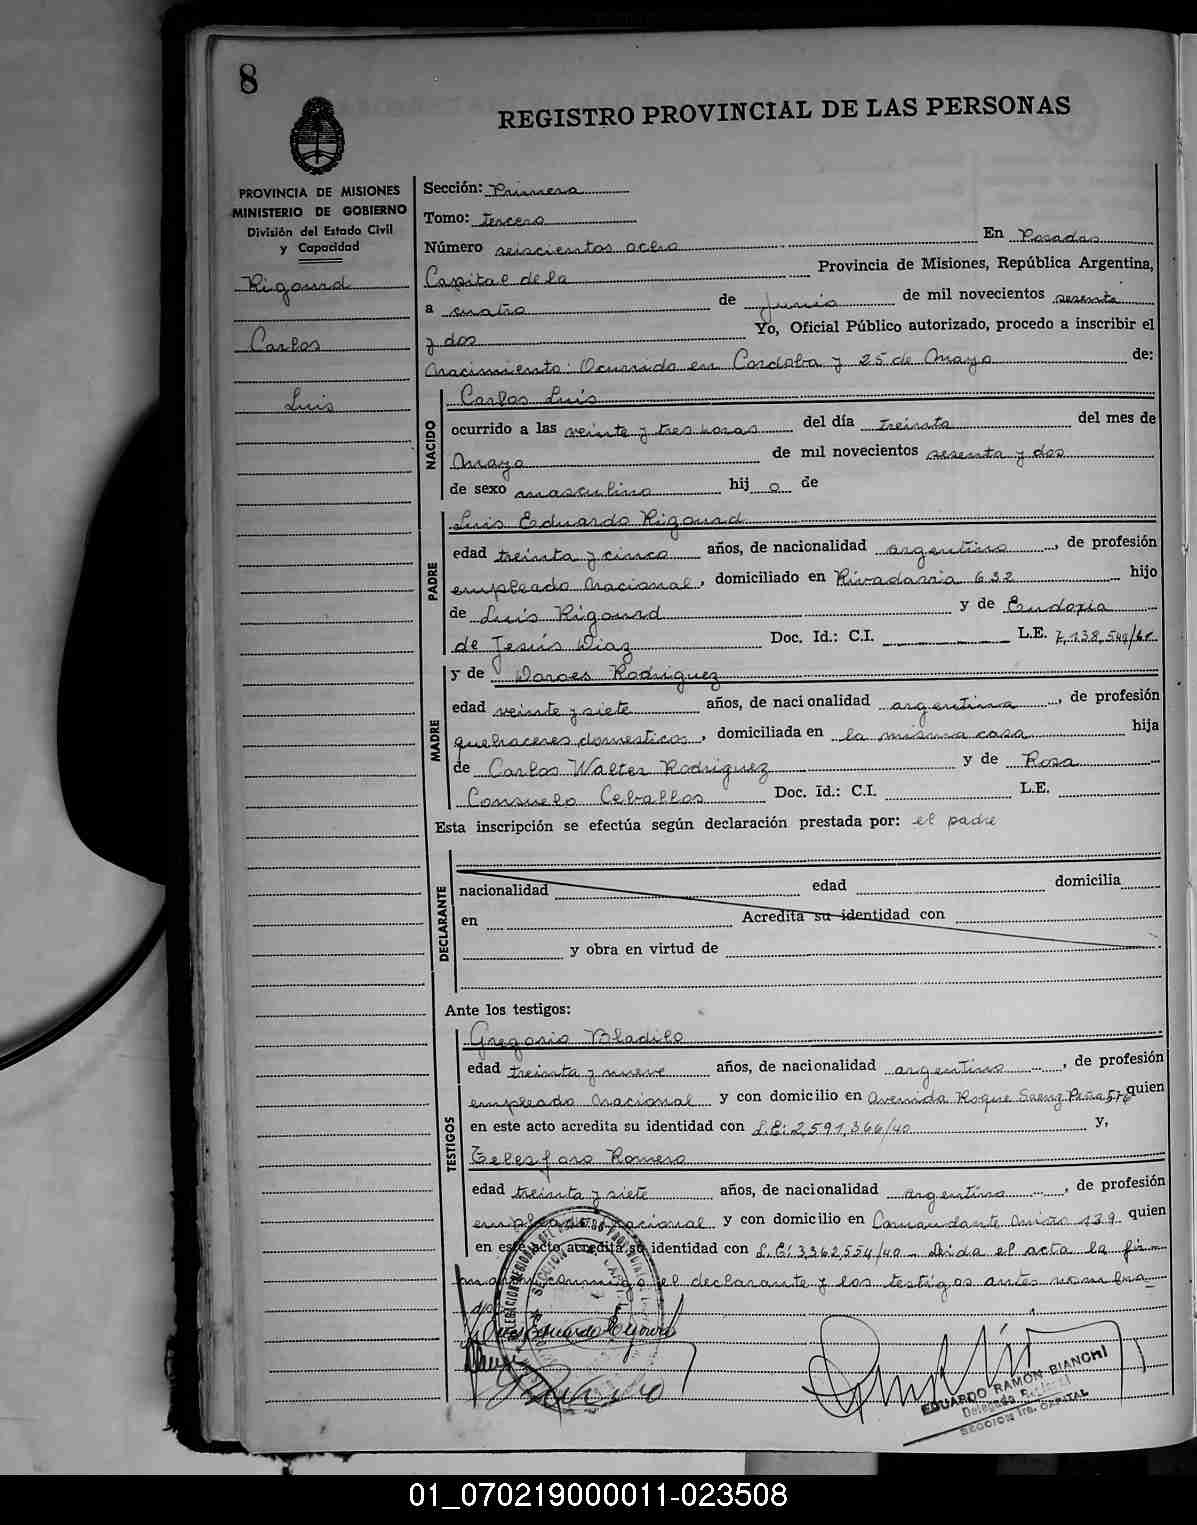 8
REGISTRO PROVINCIAL DE LAS PERSONAS
PROVINCIA DE MISIONES
MINISTERIO DE GOBIERNO
División del Estado Civil
y Capacidad
Rigourd
Carlos
Luis
Sección: Primera
Tomo: tercero
Número seiscientos ocho En Posadas
Capital de la Provincia de Misiones, República Argentina,
a cuatro de Junio de mil novecientos sesenta
y dos Yo, Oficial Público autorizado, procedo a inscribir el
Nacimiento: Ocurrido en Cordoba y 25 de Mayo de:
NACIDO
Carlos Luis
ocurrido a las veinte y tres horas del día treinta del mes de
Mayo de mil novecientos sesenta y dos
de sexo masculino hij o de
PADRE
Luis Eduardo Rigourd
edad treinta y cinco años, de nacionalidad argentino, de profesión
empleado Nacional, domiciliado en Rivadavia 632 hijo
de Luis Rigourd y de Eudoxia
de Jesús Diaz Doc. Id.: C.I. L.E.
MADRE
y de Rodriguez
edad veinte y siete años, de nacionalidad argentina, de profesión
quehaceres domesticos, domiciliada en la misma casa hija
de Carlos Walter Rodriguez y de Rosa
Consuelo Ceballos Doc. Id.: C.I. L.E.
Esta inscripción se efectúa según declaración prestada por: el padre
DECLARANTE
nacionalidad edad domicilia
en Acredita su identidad con
y obra en virtud de
Ante los testigos:
TESTIGOS
Gregorio Bladilo
edad treinta y nueve años, de nacionalidad argentino, de profesión
empleado Nacional y con domicilio en Avenida Roque Saenz Peña quien
en este acto acredita su identidad con L.E: 2,591,366/40 y,
Telesforo Romero
edad treinta y siete años, de nacionalidad argentino, de profesión
empleado nacional y con domicilio en Comandante Miño 139 quien
en este acto acredita su identidad con L.E: 3,362,554/40 - Leida el acta la fir-
man conmigo el declarante y los testigos antes nombra-
dos
Luis Eduardo Rigourd
EDUARDO RAMON BIANCHI
Delegado Regional
SECCION 1ra. CAPITAL
01_070219000011-023508